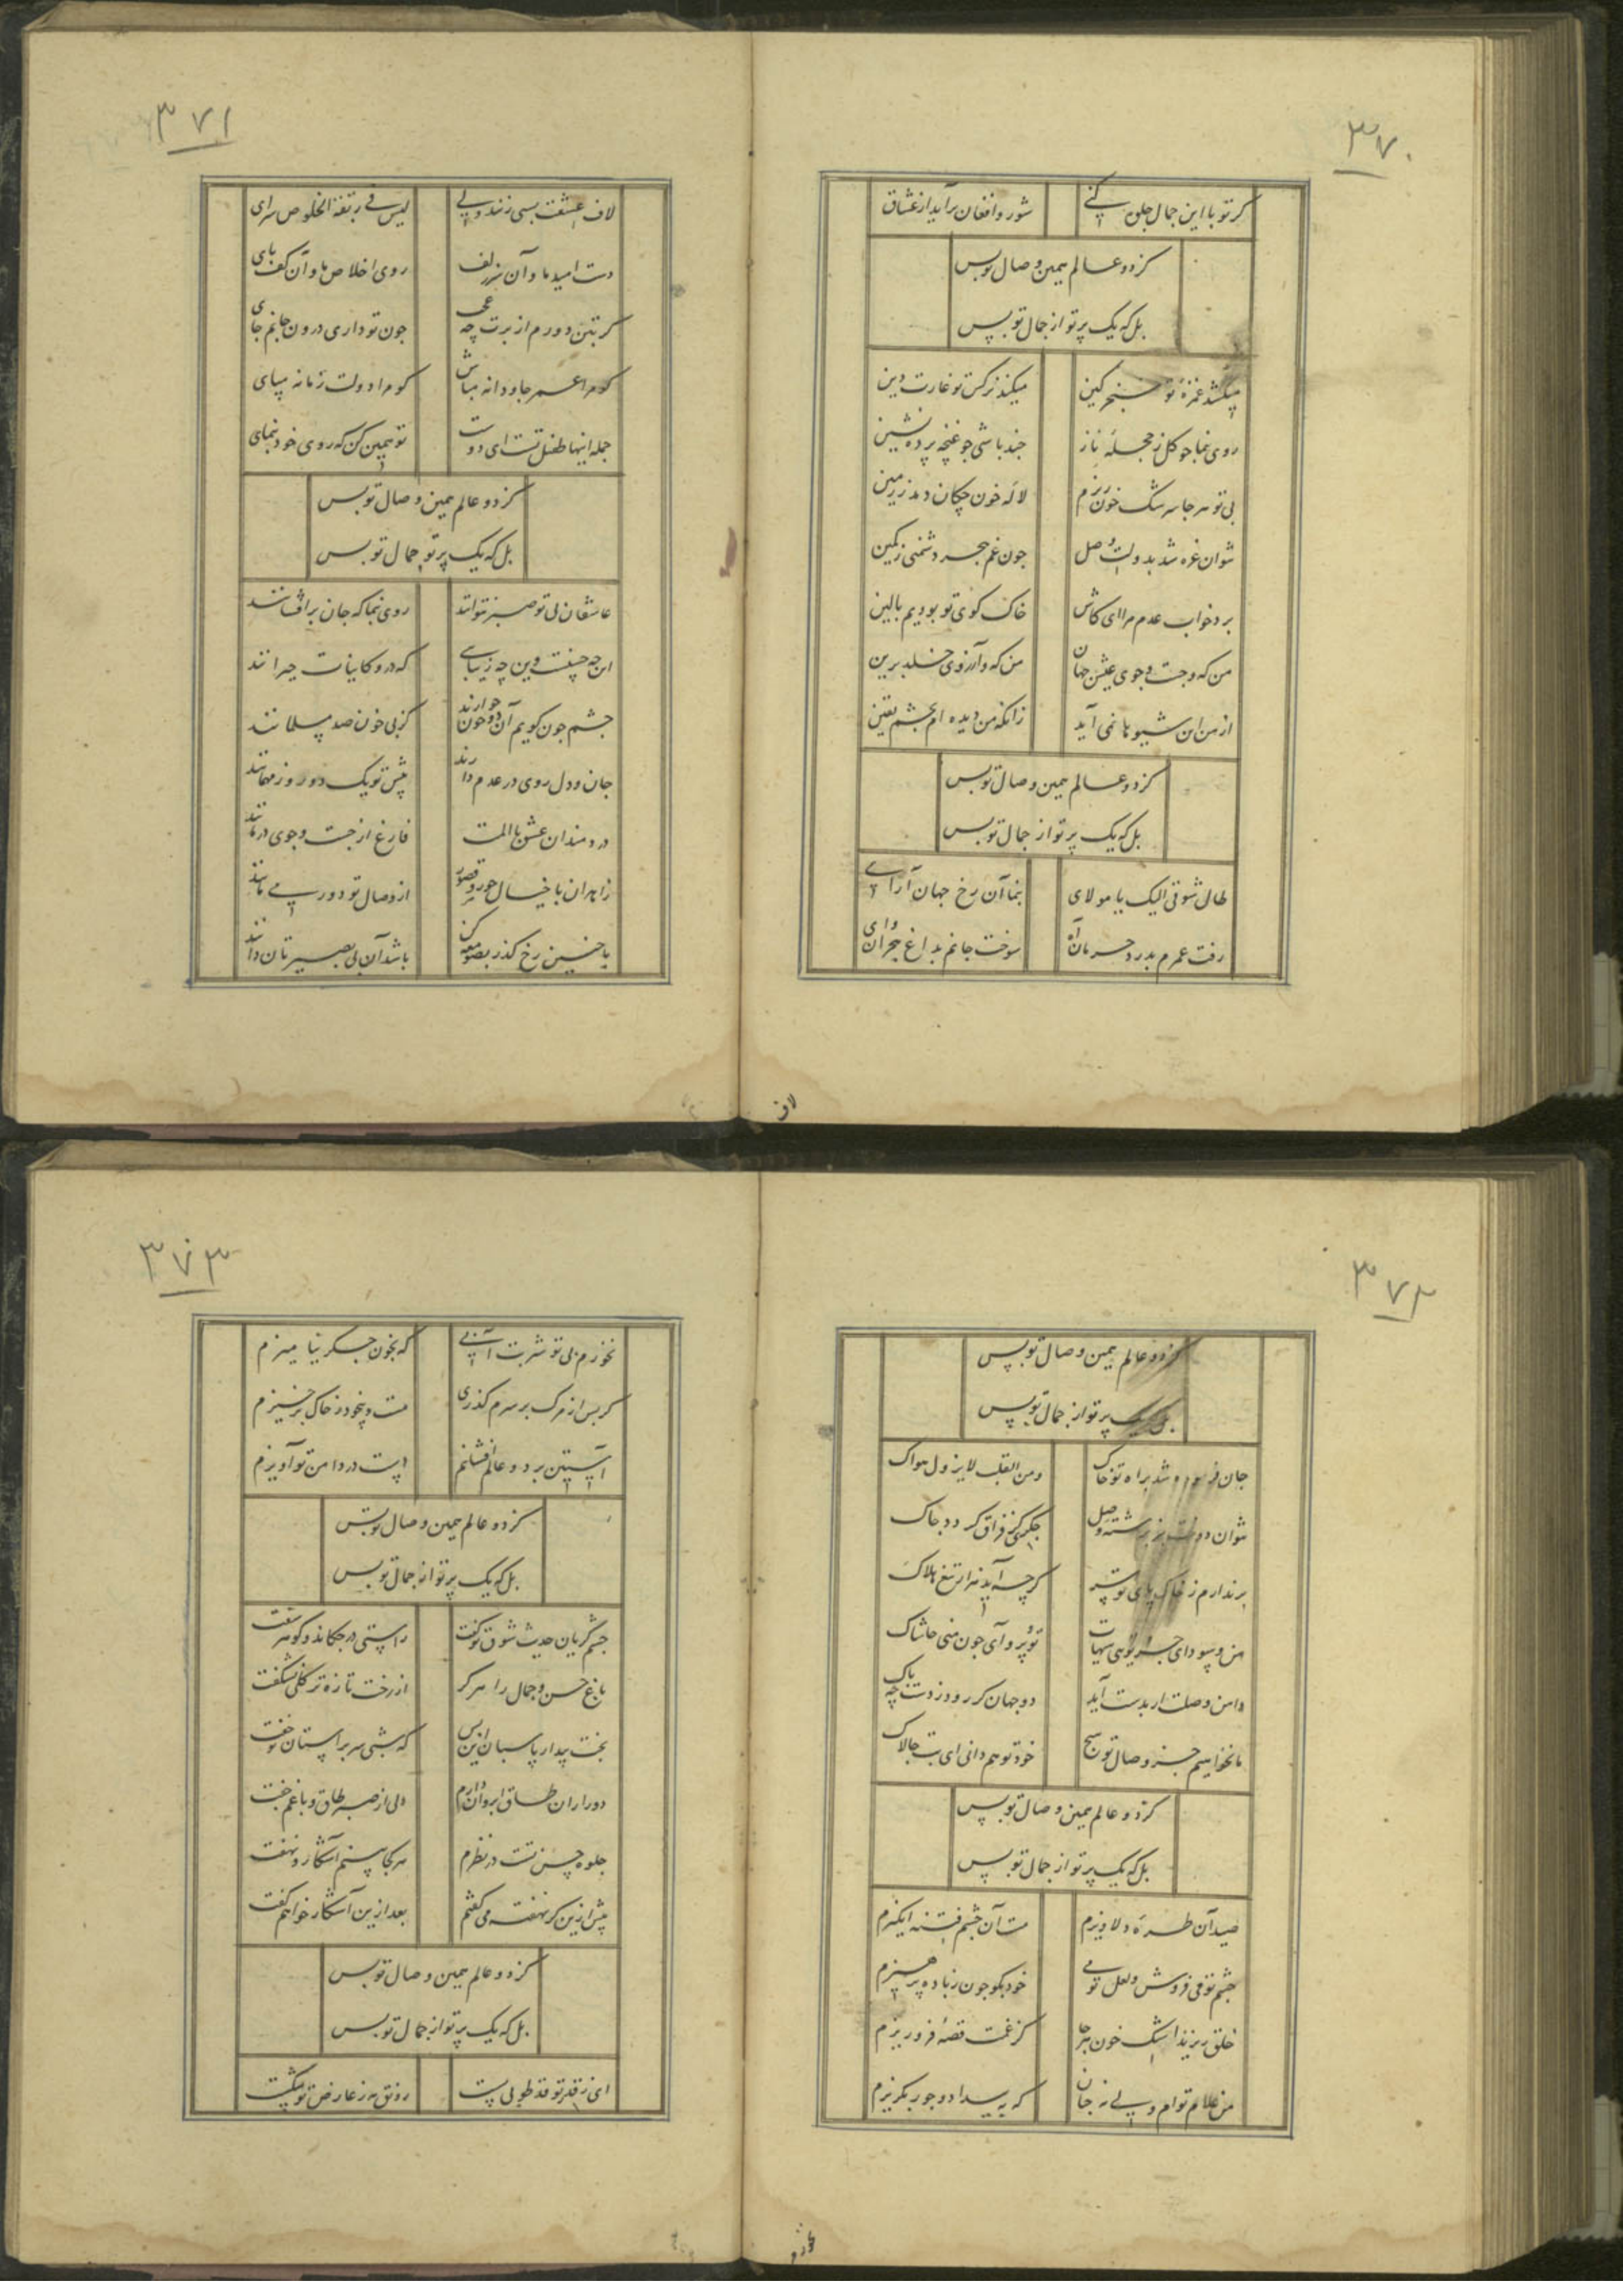 ۳۷۰
گر تو با این جمال جلوه کنی شور و افغان برآید از عشاق
کز دو عالم همین وصال تو بس
بل که یک پرتو از جمال تو بس
میکشد غمزهٔ تو خنجر کین میکند نرگس تو غارت دین
روی بنما چو گل ز حجلهٔ ناز چند باشی چو غنچه پرده نشین
بی تو هر جا سرشک خون ریزم لاله خون چکان دمد ز زمین
نتوان غره شد بدولت وصل چون غم هجر دشمنی ز کمین
برد خواب عدم مرا ای کاش خاک کوی تو بودیم بالین
من که و جست و جوی عیش جهان من که و آرزوی خلد برین
از من این شیوها نمی آید زانکه من دیده ام بچشم یقین
کز دو عالم همین وصال تو بس
بل که یک پرتو از جمال تو بس
طال شوقی الیک یا مولای بنما آن رخ جهان آرای
رفت عمرم بدرد حرمان آه سوخت جانم بداغ هجران وای
لاف
۳۷۱
لاف عشقت بسی زنند ولی لیس فی ربقة الخلوص سوای
دست امید ما و آن سر زلف روی اخلاص ما و آن کف پای
گر بتن دورم از برت چه عجب چون تو داری درون جانم جای
گو مرا عمر جاودانه مباش گو مرا دولت زمانه مپای
جمله اینها طفیل تست ای دوست تو همین کن که روی خود بنمای
کز دو عالم همین وصال تو بس
بل که یک پرتو جمال تو بس
عاشقان بی تو صبر نتوانند روی بنما که جان برافشانند
این چه حسنست وین چه زیبایی که درو کاینات حیرانند
چشم چون گویم آن دو خونخوارند کز پی خون صد مسلمانند
جان و دل روی در عدم دارند پیش تو یک دو روز مهمانند
دردمندان عشق با المت فارغ از جست و جوی درمانند
زاهدان با خیال حور و قصور از وصال تو دور می مانند
با چنین رخ گذر بصومعه کن باشد آن بی بصیرتان دانند
۳۷۲
کز دو عالم همین وصال تو بس
بل که یک پرتو از جمال تو بس
جان فرسوده شد براه تو خاک و من القلب لا یزول هواک
نتوان دوخت جز برشته وصل جگری کز فراق گردد چاک
برندارم ز خاک پای تو سر گر چه آید مرا تیغ هلاک
من و سودای جز تویی هیهات تو و پروای چون منی حاشاک
دامن وصلت ار بدست آید دو جهان گر رود ز دست چه باک
ما نخواهیم جز وصال تو هیچ خود تو هم دانی ای بت چالاک
کز دو عالم همین وصال تو بس
بل که یک پرتو از جمال تو بس
صید آن طرهٔ دلاویزم مست آن چشم فتنه انگیزم
چشم تو می فروش و لعل تو می خود بگو چون ز باده پرهیزم
خلق ریزند اشک خون هر جا کز غمت قصهٔ فرو ریزم
من غلام توام ولی نه چنان که ز بیداد و جور بگریزم
نخورم
۳۷۳
نخورم بی تو شربت آبی که بخون جگر نیامیزم
گر پس از مرگ بر سرم گذری مست و بیخود ز خاک برخیزم
آستین بر دو عالم افشانم دست در دامن تو آویزم
کز دو عالم همین وصال تو بس
بل که یک پرتو از جمال تو بس
چشم گریان حدیث شوق تو گفت راستی در چکاند و گوهر سفت
باغ حسن و جمال را هرگز از رخت تازه تر گلی نشکفت
بخت بیدار پاسبان این بس که شبی سر بر آستان تو خفت
دور از آن طاق ابروان دارم دلی از صبر طاق و با غم جفت
جلوه حسن تست در نظرم هر کجا بینم آشکار و نهفت
پیش ازین گر نهفته می گفتم بعد ازین آشکار خواهم گفت
کز دو عالم همین وصال تو بس
بل که یک پرتو از جمال تو بس
ای ز قد تو قد طوبی پست رونق مه ز عارض تو شکست